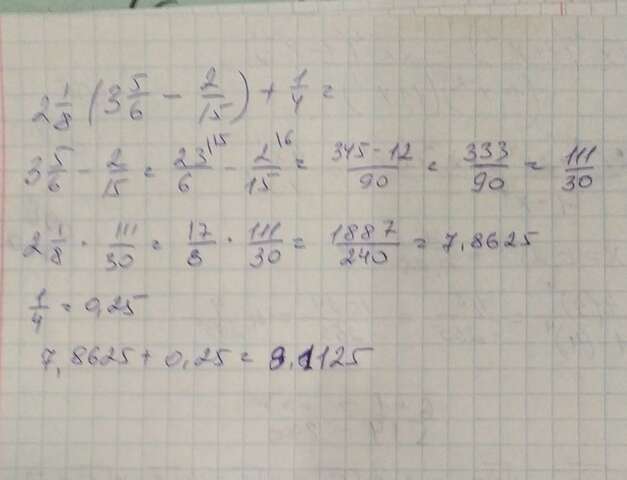 2 1/8 (3 5/6 - 2/15) + 1/4 =
3 5/6 - 2/15 = 23/6 ^15 - 2/15 ^6 = 345-12/90 = 333/90 = 111/30
2 1/8 · 111/30 = 17/8 · 111/30 = 1887/240 = 7,8625
1/4 = 0,25
7,8625 + 0,25 = 8,1125